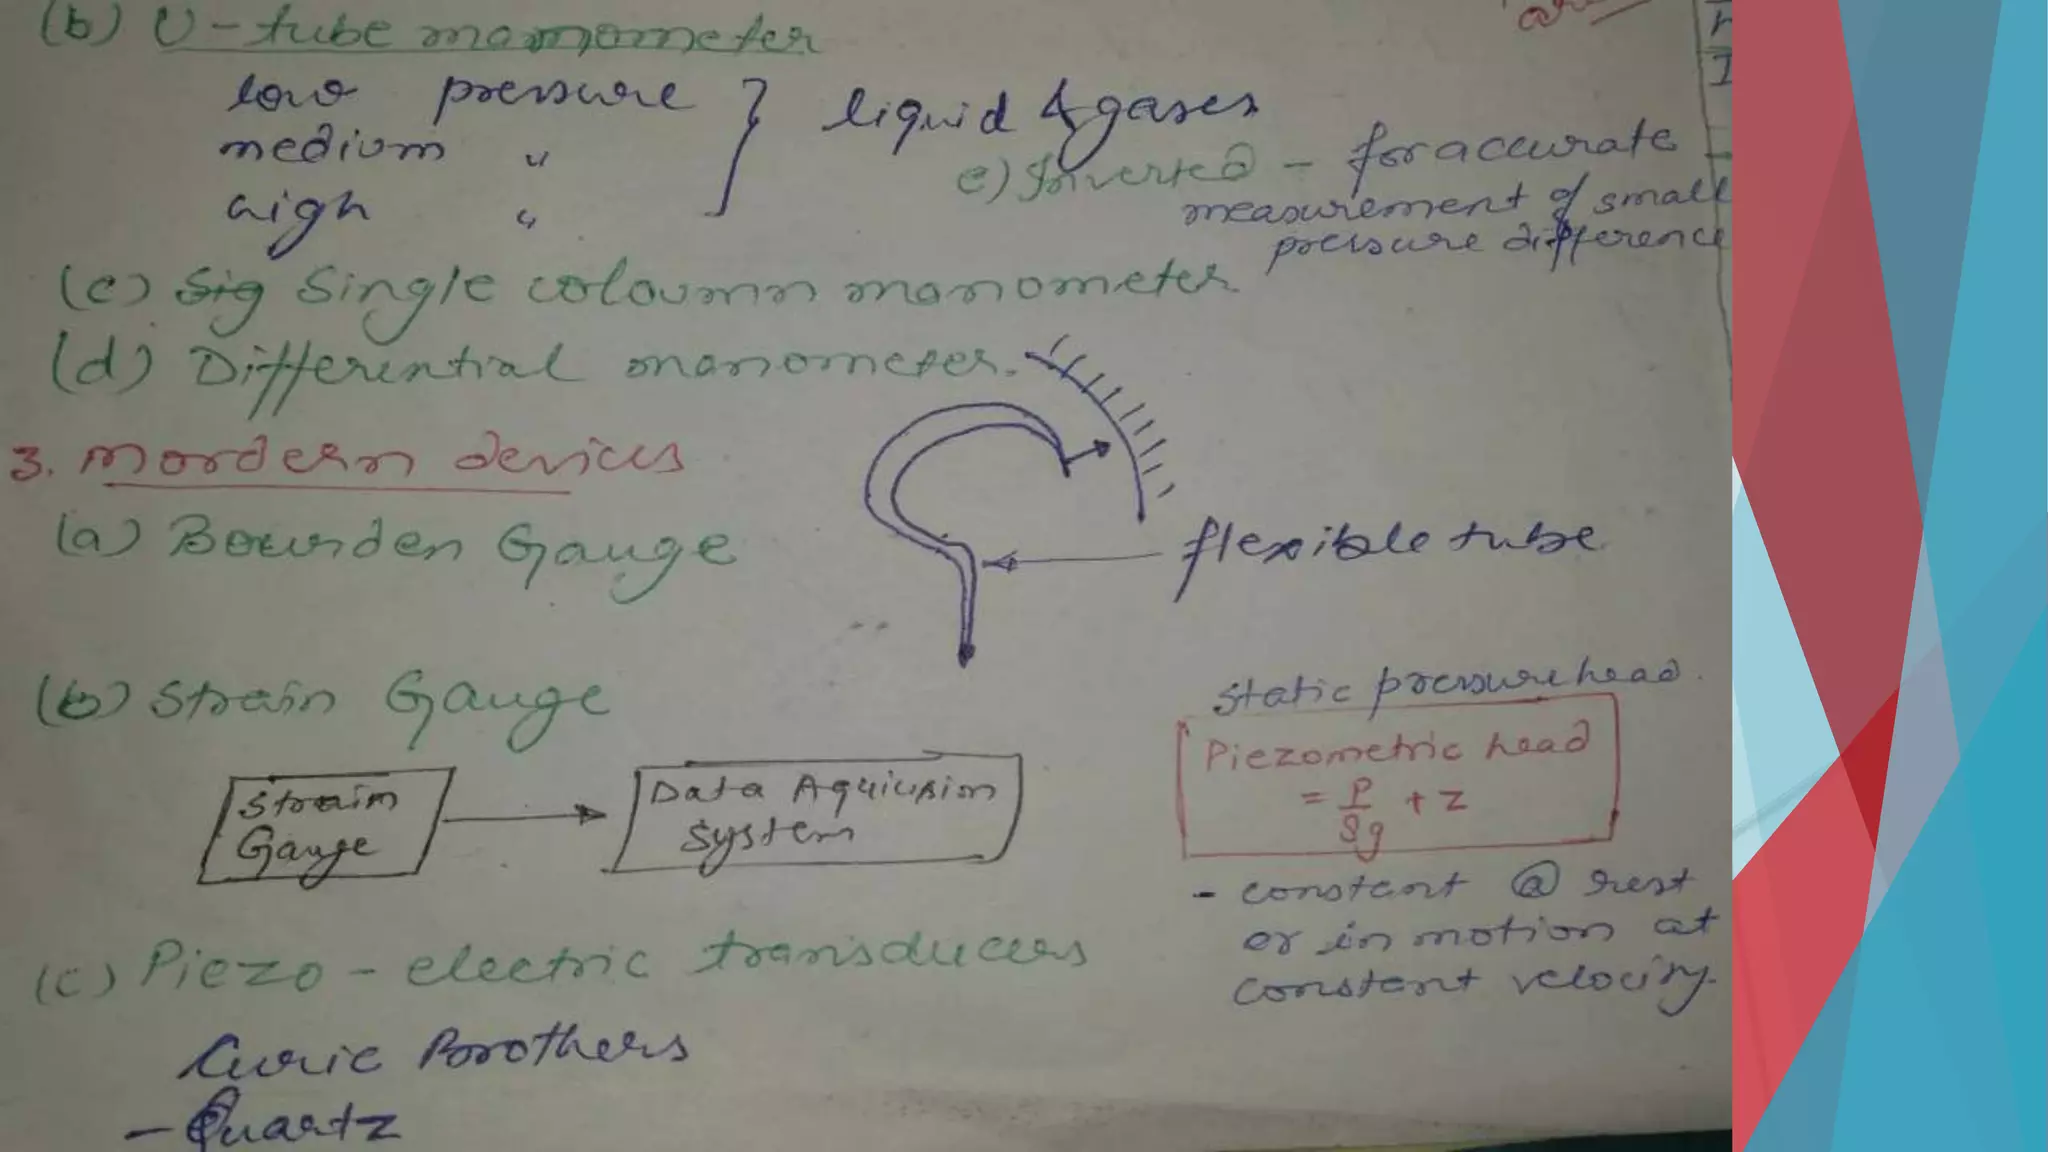 (b) U-tube manomometer
low pressure
medium "
high "
} liquid & gases
e) Inverted - for accurate
measurement of small
pressure difference
(c) Sig Single coloumn manometer
(d) Differential manometer.
3. Mordern devices
(a) Bourden Gauge
flexible tube
(b) Strain Gauge
Strain
Gauge
Data Aquicision
System
Static pressure head.
Piezometric head
= P/ρg + z
- constant @ rest
or in motion at
constant velocity.
(c) Piezo-electric transducers
Curie Brothers
- Quartz